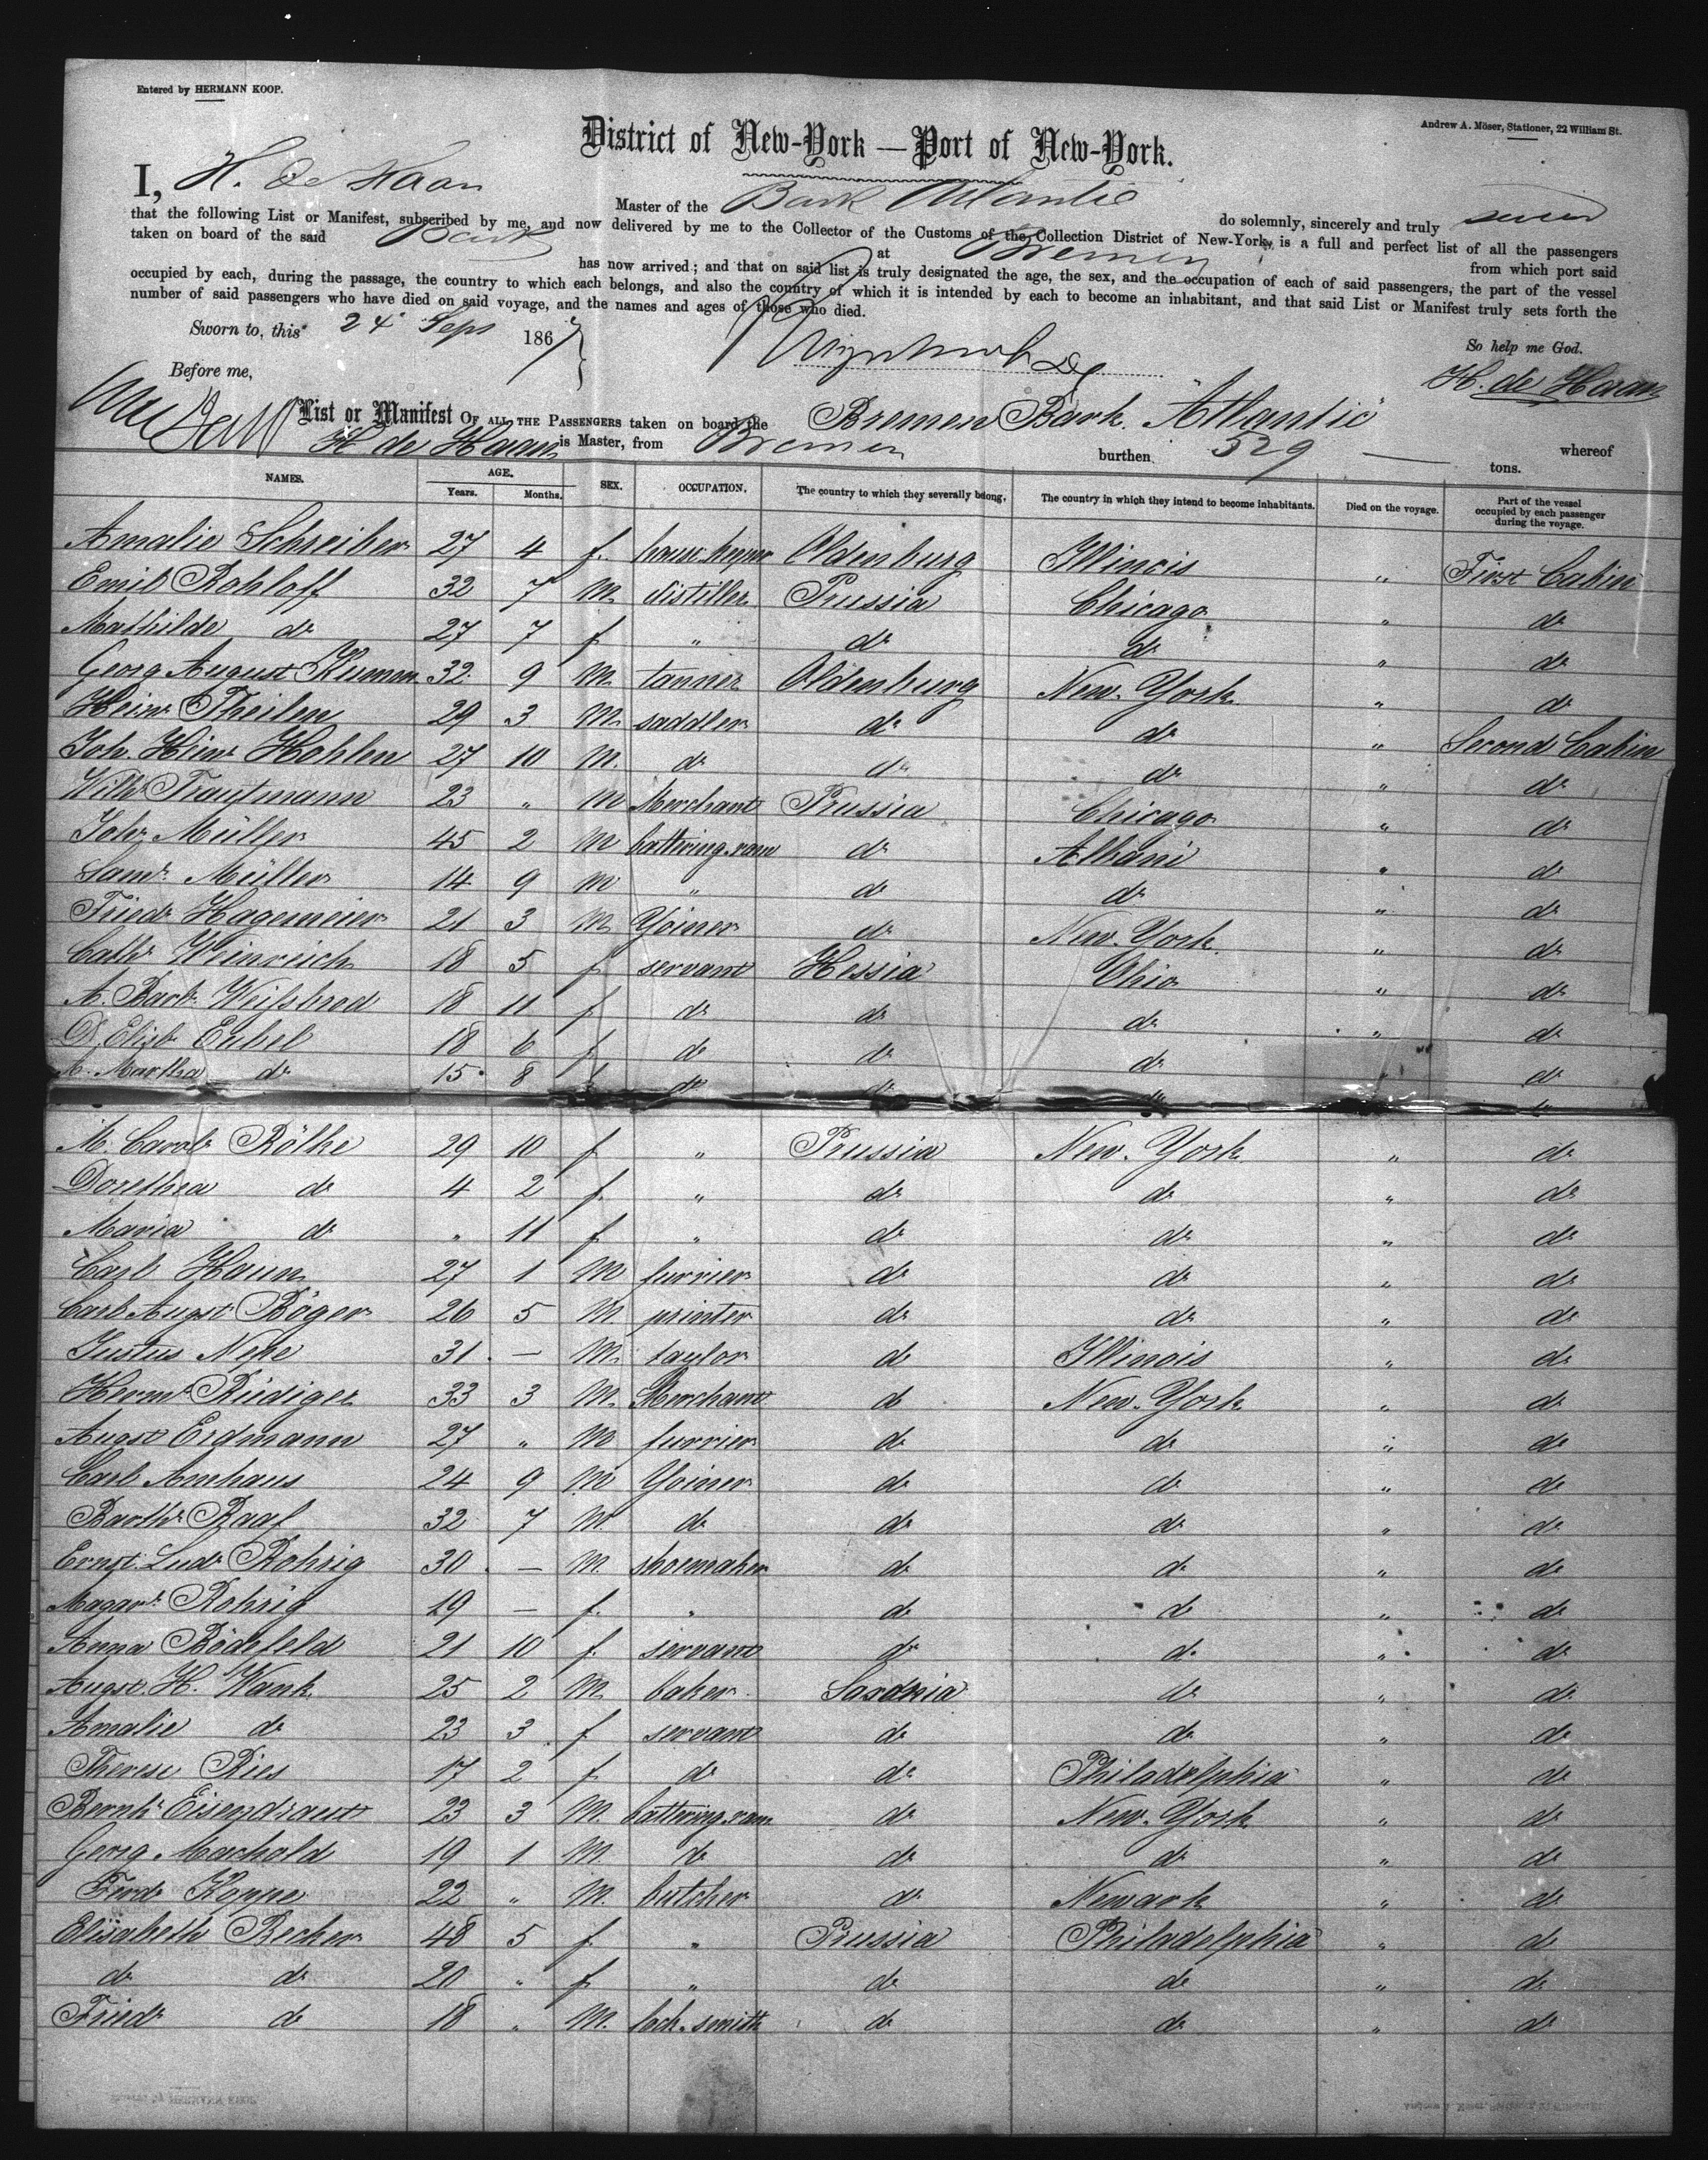 Entered by HERMANN KOOP.
Andrew A. Möser, Stationer, 22 William St.
District of New-York — Port of New-York.
I, H. de Haan Master of the Bark Atlantic do solemnly, sincerely and truly swear
that the following List or Manifest, subscribed by me, and now delivered by me to the Collector of the Customs of the Collection District of New-York, is a full and perfect list of all the passengers
taken on board of the said Bark at Bremen from which port said
has now arrived; and that on said list is truly designated the age, the sex, and the occupation of each of said passengers, the part of the vessel
occupied by each, during the passage, the country to which each belongs, and also the country of which it is intended by each to become an inhabitant, and that said List or Manifest truly sets forth the
number of said passengers who have died on said voyage, and the names and ages of those who died.
Sworn to, this 24 Sept 1867
So help me God.
Before me,
H. de Haan
List or Manifest OF ALL THE PASSENGERS taken on board the Bremen Bark. Atlantic whereof
H de Haan is Master, from Bremen burthen 529 — tons.
NAMES. AGE. Years. Months. SEX. OCCUPATION. The country to which they severally belong, The country in which they intend to become inhabitants. Died on the voyage. Part of the vessel occupied by each passenger during the voyage.
Amalie Schreiber 27 4 f. Oldenburg Illinois " First Cabin
Emil Rohloff 32 7 m. distiller Prussia Chicago " do
Mathilde do 27 7 f " do do " do
Georg August Kumm 32 9 m. tanner Oldenburg New-York " do
Heinr Theilen 29 3 m. saddler do do " Second Cabin
Joh. Heinr Hohlen 27 10 m. do do do " do
Wilhr Trautmann 23 " m Merchant Prussia Chicago " do
Johr Müller 45 2 m battering-ram do Albani " do
Saml Müller 14 9 m " do do " do
Friedr Hagemeier 21 3 m Yoiner do New-York " do
Cathr Weinreich 18 5 f servant Hessia Ohio " do
A. Barb. Weissbrod 18 11 f do do do " do
D. Elisb Eubel 18 6 f do do do " do
A. Martha do 15 8 f do do do " do
M. Carol. Rölke 29 10 f " Prussia New-York " do
Dorethea do 4 2 f. " do do " do
Maria do " 11 f " do do " do
Carl Haun 27 1 m furrier do do " do
Carl Augst Böger 26 5 m printer do do " do
Justus Nepe 31 — m. taylor do Illinois " do
Hermr Rüdiger 33 3 m. Merchant do New-York " do
Augst Erdmann 27 " m furrier do do " do
Carl Amhaus 24 9 m Yoiner do do " do
Barthr Raaf 32 7 m. do do do " do
Ernst. Ludr Rohrig 30 — m. shoemaker do do " do
Magart Rohrig 19 — f. " do do " do
Anna Bödefeld 21 10 f. servant do do " do
Augst. H. Wank 25 2 m. baker Saxonia do " do
Amalie do 23 3 f servant do do " do
Therese Ries 17 2 f do do Philadelphia " do
Bernhr Eisendraut 23 3 m. battering-ram do New-York " do
Georg Machold 19 1 m. do do do " do
Ferdr Koppe 22 " m. butcher do Newark " do
Elisabeth Becker 48 5 f " Prussia Philadelphia " do
do do 20 " f " do do " do
Friedr do 18 " m. lock-smith do do " do